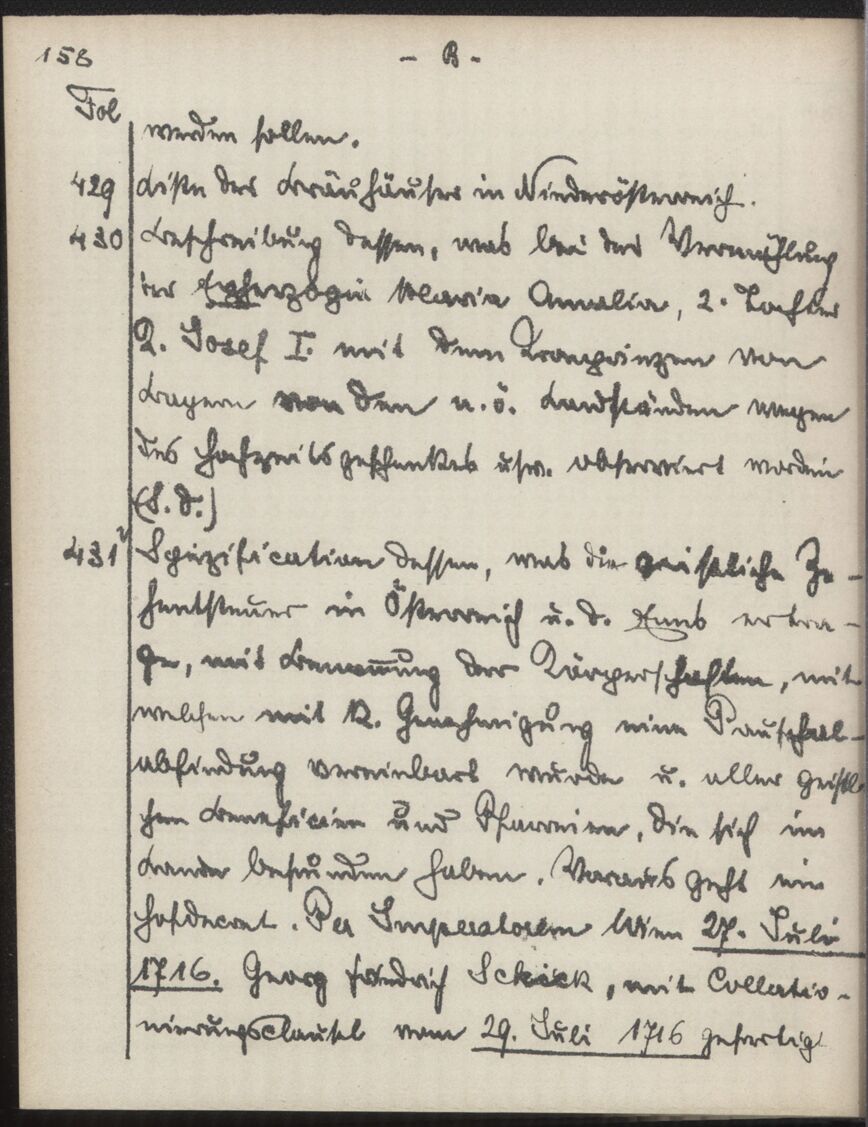 158 - B -
Fol
werden sollen.
429 Liste der Bräuhäuser in Niederösterreich.
430 Beschreibung dessen, was bei der Vermählung
der Erzherzogin Maria Amalia, 2. Tochter
K. Josef I. mit dem Kronprinzen von
Bayern von den n.ö. Landständen wegen
des Hochzeitsgeschenkes usw. observiert worden
(s.d.)
431v Spezification dessen, was die geistliche Ze-
hentsteuer in Österreich u. d. Enns ertra-
ge, mit Benennung der Körperschaften, mit
welchen mit K. Genehmigung eine Pauschal-
abfindung vereinbart wurde u. aller geistl-
chen Beneficien und Pfarreien, die sich im
Lande befunden haben. Voraus geht ein
Hofdecret. Per Imperatorem Wien 27. Juli
1716. Georg Friedrich Schick, mit Collatio-
nierungsclausel vom 29. Juli 1716 gefertigt